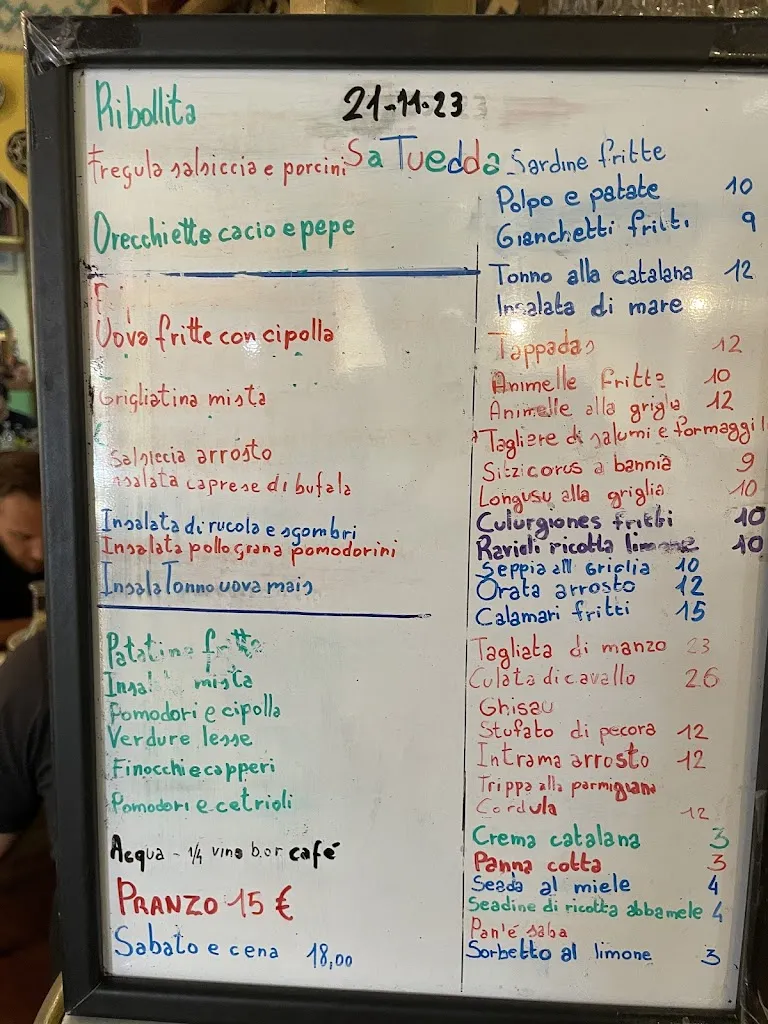 Ribollita
21-11-23
Fregula salsiccia e porcini
Sa Tuedda
Orecchiette cacio e pepe
Uova fritte con cipolla
Grigliatina mista
Salsiccia arrosto
Insalata caprese di bufala
Insalata di rucola e sgombri
Insalata pollo grana pomodorini
InsalaTonno uova mais
Patatine fritte
mista
Pomodori e cipolla
Verdure lesse
Finocchi e capperi
Pomodori e cetrioli
Acqua - 1/4 vino café
PRANZO 15 €
Sabato e cena 18,00
Sardine fritte
Polpo e patate 10
Gianchetti fritti 9
Tonno alla catalana 12
Insalata di mare
Tappadas 12
Animelle fritte 10
Animelle alla griglia 12
Tagliere di salumi e formaggi
Sitzicorus a bannia 9
Longusu alla griglia 10
Culurgiones fritti 10
Ravioli ricotta limone 10
Seppia all griglia 10
Orata arrosto 12
Calamari fritti 15
Tagliata di manzo 23
Culata di cavallo 26
Ghisau
Stufato di pecora 12
Intrama arrosto 12
Trippa alla parmigiana
Cordula 12
Crema catalana 3
Panna cotta 3
Seada al miele 4
Seadine di ricotta abbamele 4
Pan'e saba
Sorbetto al limone 3